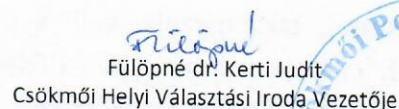 Fülöpné
Fülöpné dr. Kerti Judit
Csökmői Helyi Választási Iroda Vezetője